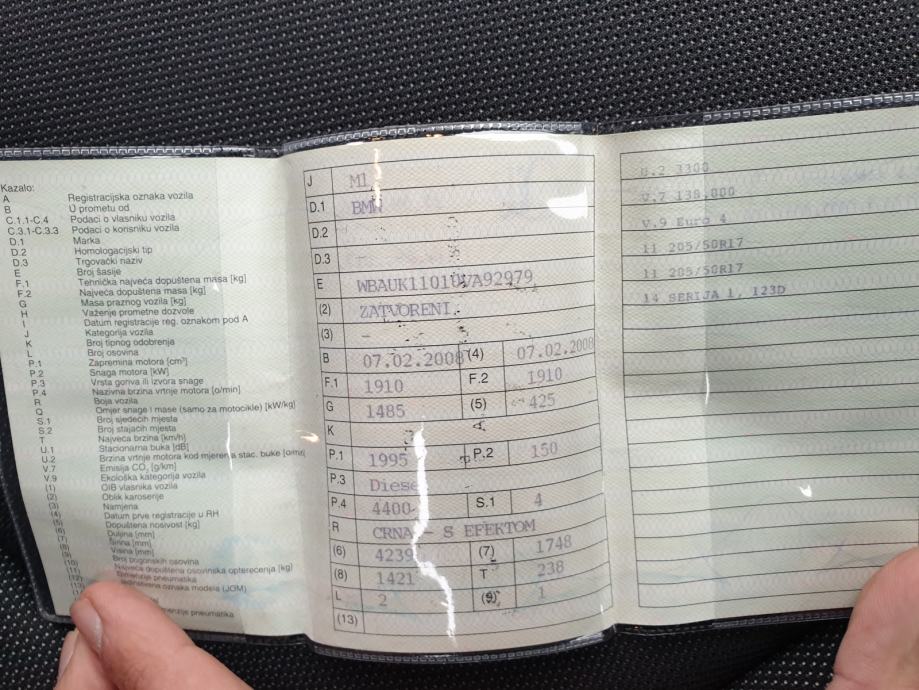 Kazalo:
A Registracijska oznaka vozila
B U prometu od
C.1.1-C.4 Podaci o vlasniku vozila
C.3.1-C.3.3 Podaci o korisniku vozila
D.1 Marka
D.2 Homologacijski tip
D.3 Trgovački naziv
E Broj šasije
F.1 Tehnička najveća dopuštena masa [kg]
F.2 Najveća dopuštena masa [kg]
G Masa praznog vozila [kg]
H Važenje prometne dozvole
I Datum registracije reg. oznakom pod A
J Kategorija vozila
K Broj tipnog odobrenja
L Broj osovina
P.1 Zapremina motora [cm³]
P.2 Snaga motora [kW]
P.3 Vrsta goriva ili izvora snage
P.4 Nazivna brzina vrtnje motora [o/min]
R Boja vozila
Q Omjer snage i mase (samo za motocikle) [kW/kg]
S.1 Broj sjedećih mjesta
S.2 Broj stajaćih mjesta
T Najveća brzina [km/h]
U.1 Stacionarna buka [dB]
U.2 Brzina vrtnje motora kod mjerenja stac. buke [o/min]
V.7 Emisija CO₂ [g/km]
V.9 Ekološka kategorija vozila
(1) OIB vlasnika vozila
(2) Oblik karoserije
(3) Namjena
(4) Datum prve registracije u RH
(5) Dopuštena nosivost [kg]
(6) Duljina [mm]
(7) Širina [mm]
(8) Visina [mm]
(9) Broj pogonskih osovina
(10) Najveća dopuštena osovinska opterećenja [kg]
(11) Dimenzije pneumatika
(12) oznaka modela (JOM)
pneumatika
J M1
D.1 BMW
D.2 -
D.3 -
E
(2) ZATVORENI
(3) -
B 07.02.2008 (4) 07.02.2008
F.1 1910 F.2 1910
G 1485 (5) 425
K
P.1 1995 P.2 150
P.3 Diesel
P.4 4400 S.1 4
R CRNA - S EFEKTOM
(6) 4239 (7) 1748
(8) 1421 T 238
L 2 (9) 1
(13)
U.2 3300
V.7 138.000
V.9 Euro 4
11 205/50R17
11 205/50R17
14 SERIJA 1, 123D